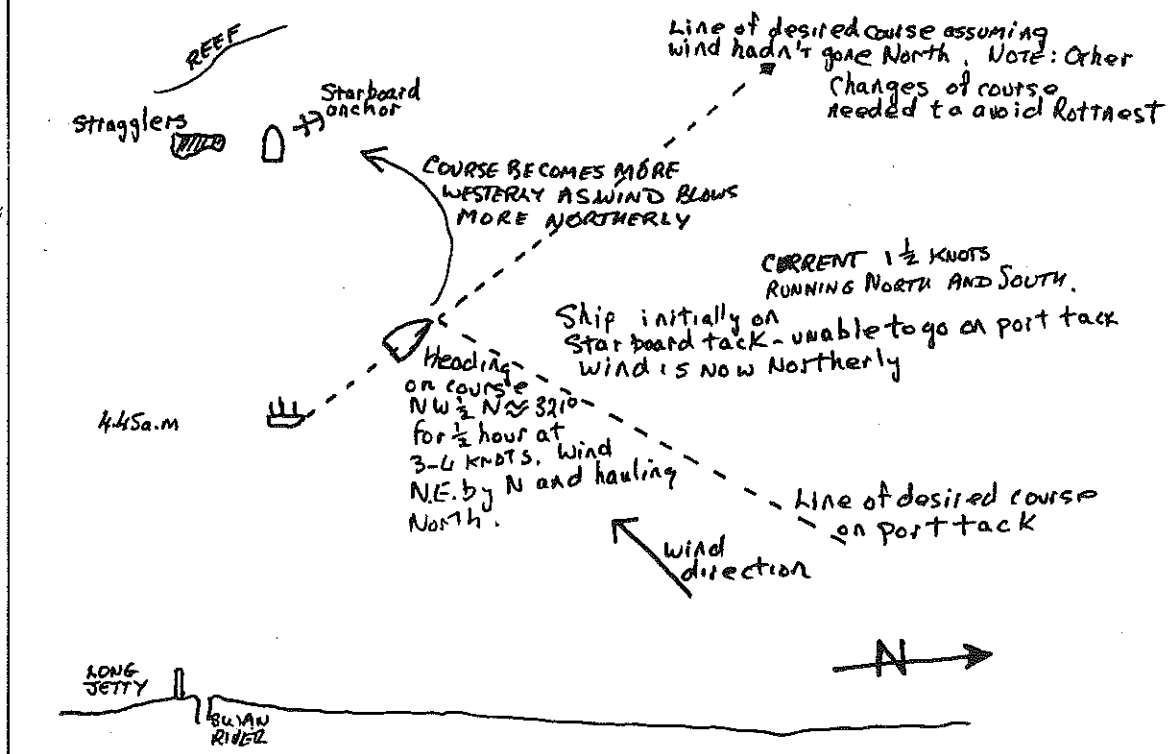 REEF
Stragglers
Starboard
anchor
Line of desired course assuming
wind hadn't gone North. NOTE: Other
Changes of course
needed to avoid Rottnest
COURSE BECOMES MORE
WESTERLY AS WIND BLOWS
MORE NORTHERLY
CURRENT 1 1/2 KNOTS
RUNNING NORTH AND SOUTH.
Ship initially on
Starboard tack - unable to go on port tack
wind is now Northerly
4.45a.m
Heading
on course
NW 1/2 N ≈ 321°
for 1/2 hour at
3-4 KNOTS. Wind
N.E. by N and hauling
North.
Line of desired course
on port tack
wind
direction
N
LONG
JETTY
SWAN
RIVER